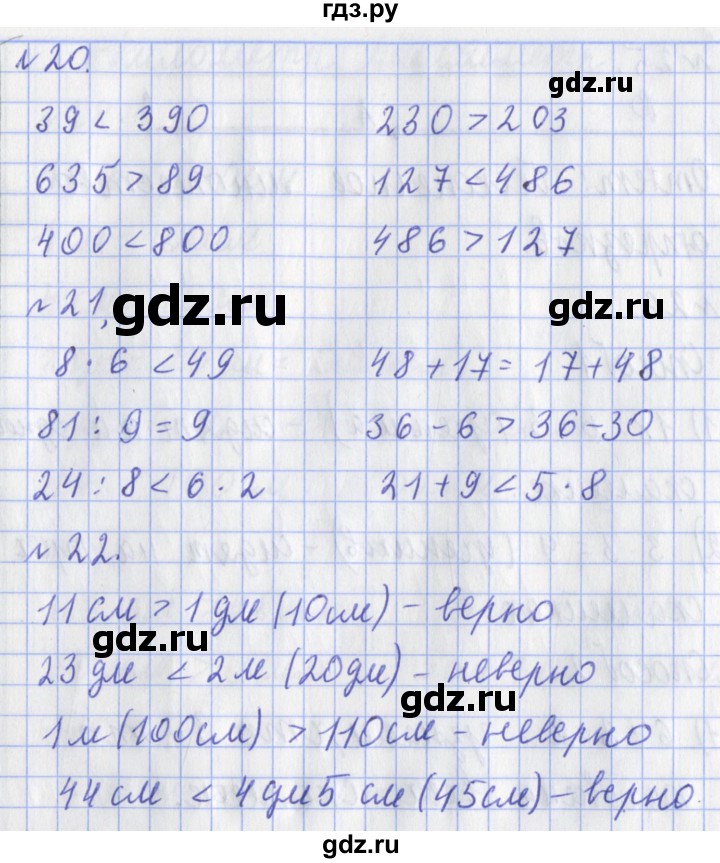 гдз.ру
№20.
gdz.ru
39 < 390 230 > 203
635 > 89 127 < 486
400 < 800 486 > 127
№21, gdz.ru gdz.ru
8 · 6 < 49 48 + 17 = 17 + 48
81 : 9 = 9 36 - 6 > 36 - 30
24 : 8 < 6 · 2 21 + 9 < 5 · 8
№22.
11 см > 1 дм (10 см) - верно
gdz.ru
23 дм < 2 м (20 дм) - неверно
gdz.ru
1 м (100 см) > 110 см - неверно
44 см < 4 дм 5 см (45 см) - верно.
gdz.ru